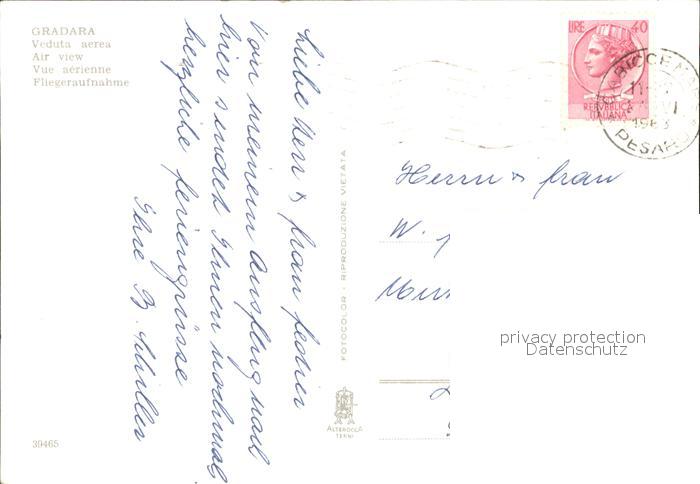 GRADARA
Veduta aerea
Air view
Vue aérienne
Fliegeraufnahme
Liebe Herr & Frau
Von meinem Ausflug nach
hier sendet Ihnen nochmal
herzliche Feriengrüsse
Ihre B. Achilles
39465
FOTOCOLOR - RIPRODUZIONE VIETATA
ALTEROCCA
TERNI
LIRE 40
REPVBBLICA
ITALIANA
1963
PESARO
Herrn & Frau
W.
privacy protection
Datenschutz